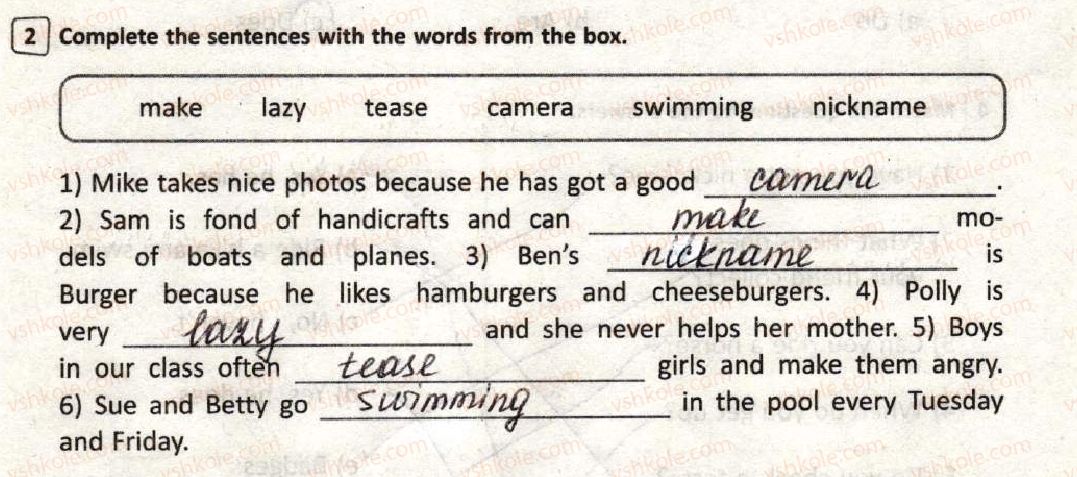 2 Complete the sentences with the words from the box.
make lazy tease camera swimming nickname
1) Mike takes nice photos because he has got a good camera.
2) Sam is fond of handicrafts and can make mo-
dels of boats and planes. 3) Ben's nickname is
Burger because he likes hamburgers and cheeseburgers. 4) Polly is
very lazy and she never helps her mother. 5) Boys
in our class often tease girls and make them angry.
6) Sue and Betty go swimming in the pool every Tuesday
and Friday.